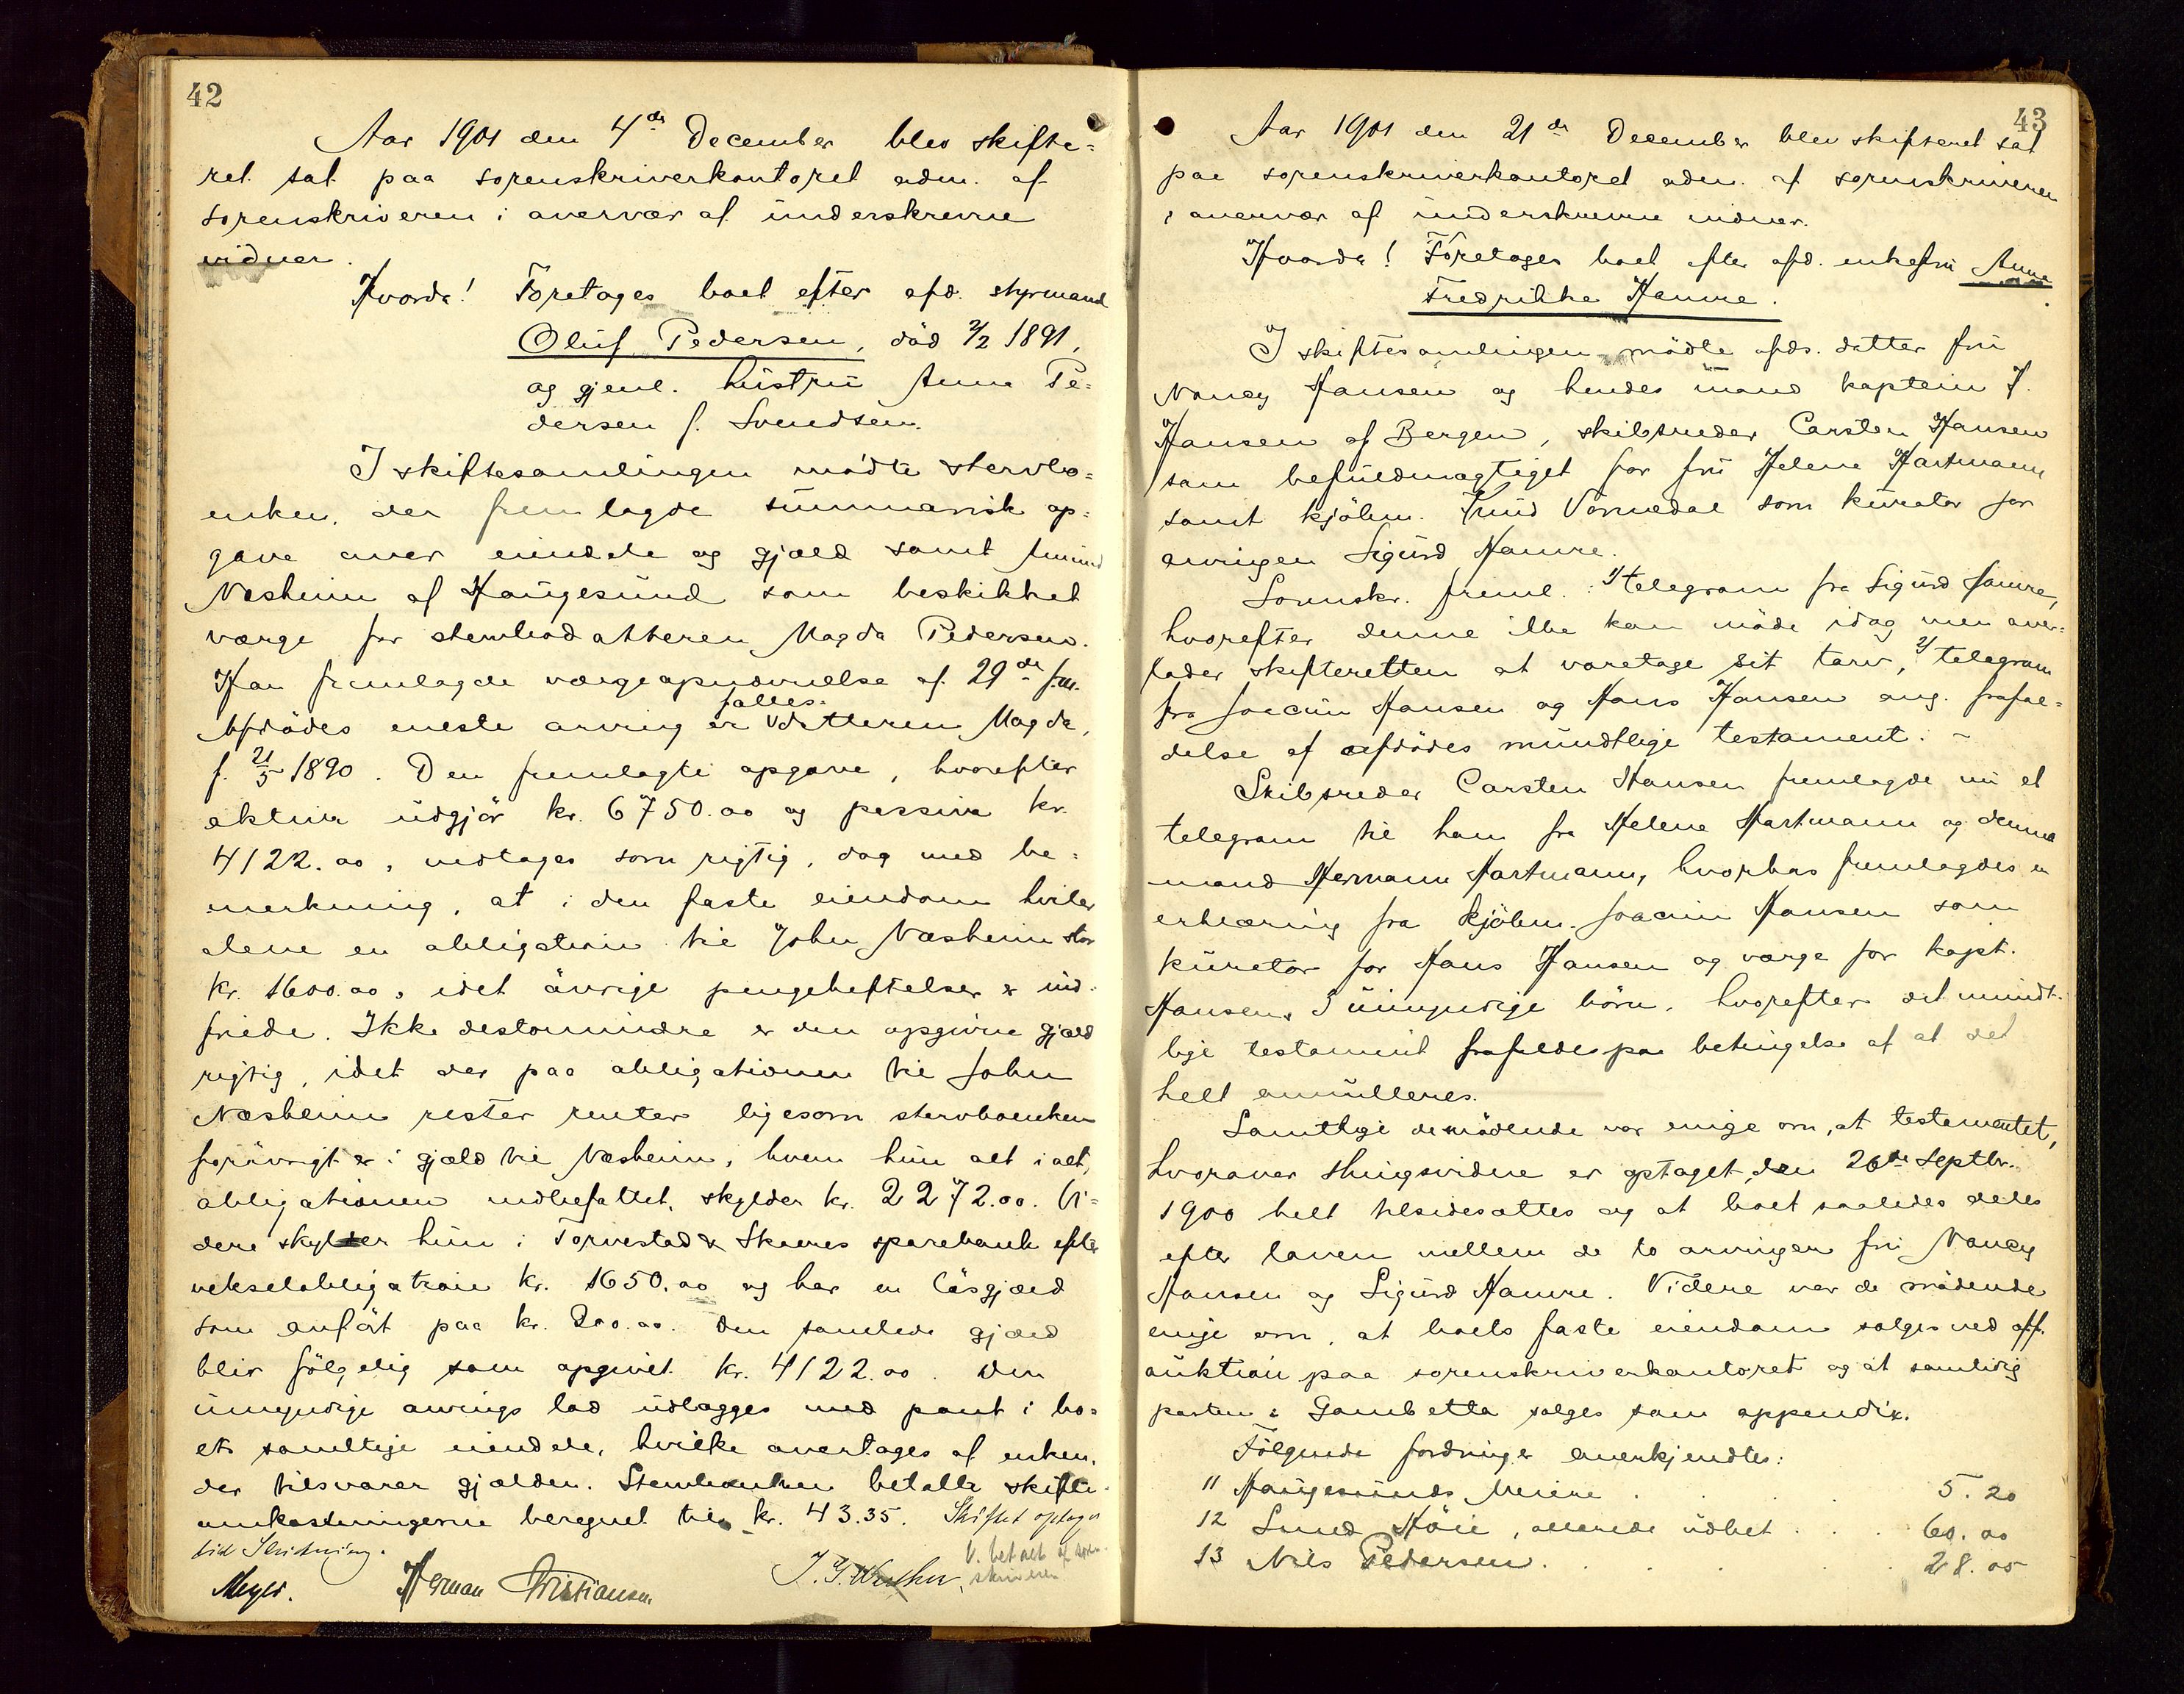 42
Aar 1901 den 4de December blev skifte=
ret sat paa sorenskriverkontoret adm. af
sorenskriveren i overvær af underskrevne
vidner.
Hvorda! Foretages boet efter afd. styrmand
Oluf Pedersen, död 2/2 1891,
og gjenl. hustru Anna Pe=
dersen f. Svendsen.
I skiftesamlingen mödte stervbo=
enken, der fremlagde summarisk op=
gave over eiendele og gjæld samt
Næsheim af Haugesund som beskikket
værge for stervbodatteren Magda Pedersen.
Han fremlagde værgeopnævnelse af 29de f.m.
fælles
Afdödes eneste arving er V datteren Magda,
f. 21/5 1890. Den fremlagte opgave, hvorefter
aktiva udgjör kr. 6750.00 og passiva kr.
4122.00, vedtages som rigtig, dog med be=
merkning, at i den faste eiendom hviler
alene en obligation til John Næsheim stor
kr. 1600.00, idet övrige pengeheftelser er ind=
friede. Ikke destomindre er den opgivne gjæld
rigtig, idet der paa obligationen til John
Næsheim rester renter ligesom stervboenken
forövrigt er i gjæld til Næsheim, hvem hun alt i alt,
obligationen indbefattet, skylder kr. 2272.00. Vi=
dere skylder hun i Torvestad & Skaares sparebank efter
vekselobligation kr. 1650.00 og har en lösgjæld
som anfört paa kr. 200.00. Den samlede gjæld
blir fölgelig som opgivet kr. 4122.00. Den
umyndige arvings lod udlægges med pant i bo=
ets samtlige eiendele, hvilke overtages af enken,
der tilsvarer gjælden. Stervboenken betalte skifte=
omkostningerne beregnet til kr. 43.35. Skiftet optages
til Slutning.
V. betalt af soren
skriveren
Meyer. Herman Christiansen.
43
Aar 1901 den 21de December blev skifteret sat
paa sorenskriverkontoret adm. af sorenskriveren
i overvær af underskrevne vidner.
Hvorda! Foretages boet efter afd. enkefru Anna
Fredrikke Hamre.
I skiftesamlingen mödte afds. datter fru
Nancy Hansen og hendes mand kaptein J.
Hansen af Bergen, skibsreder Carsten Hansen
som befuldmægtiget for fru Helene Hartmann
samt kjöbm. Knud Vormedal som kurator for
arvingen Sigurd Hamre.
Sorenskr. freml.: 1/ telegram fra Sigurd Hamre,
hvorefter denne ikke kan möde idag men over=
lader skifteretten at varetage sit tarv, 2/ telegram
fra Joacim Hansen og Hans Hansen ang. frafal=
delse af afdödes mundtlige testament. –
Skibsreder Carsten Hansen fremlagde nu et
telegram til ham fra Helene Hartmann og dennes
mand Hermann Hartmann, hvorhos fremlagdes en
erklæring fra kjöbm. Joacim Hansen som
kurator for Hans Hansen og værge for kapt.
Hansens 3 umyndige börn, hvorefter det mundt=
lige testament frafaldes paa betingelse af at det
helt annulleres.
Samtlige de mödende var enige om, at testamentet,
hvorover thingsvidne er optaget den 26de Septbr.
1900 helt tilsidesættes og at boet saaledes deles
efter loven mellem de to arvinger fru Nancy
Hansen og Sigurd Hamre. Videre var de mödende
enige om, at boets faste eiendom sælges ved off.
auktion paa sorenskriverkontoret og at samtidig
parten i Gambetta sælges som appendix.
Fölgende fordringer anerkjendtes:
11 Haugesunds Meieri . . . 5.20
12 Lund Höie, allerede udbet. . . . 60.00
13 Nils Pedersen . . . . 28.05